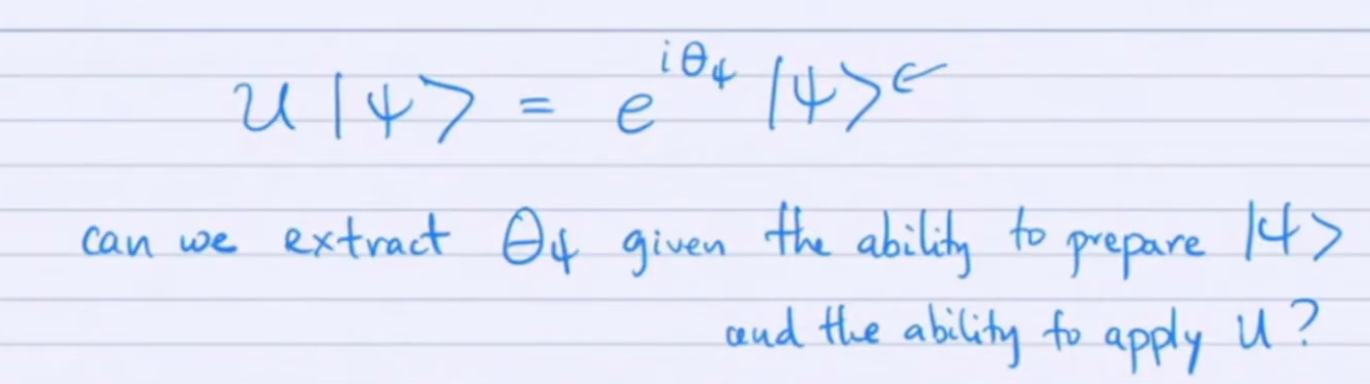 U|ψ> = e^{iθ_ψ} |ψ> ←
can we extract θ_ψ given the ability to prepare |ψ>
and the ability to apply U?